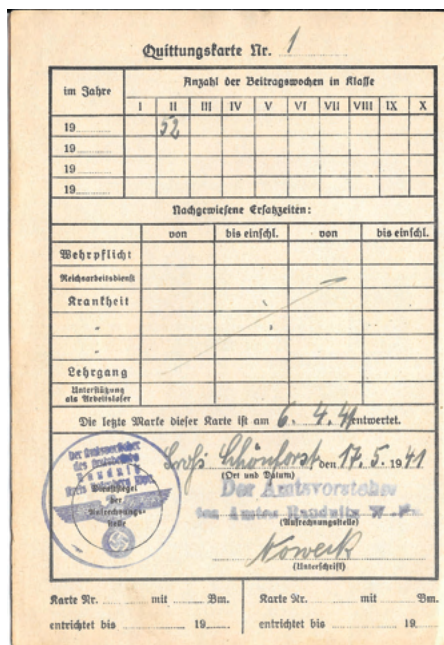 Quittungskarte Nr. 1
im Jahre
Anzahl der Beitragswochen in Klasse
I II III IV V VI VII VIII IX X
19 52
19
19
19
Nachgewiesene Ersatzzeiten:
von bis einschl. von bis einschl.
Wehrpflicht
Reichsarbeitsdienst
Krankheit
"
"
Lehrgang
Unterstützung
als Arbeitsloser
Die letzte Marke dieser Karte ist am 6. 4. 41 entwertet.
der Amtsvorsteher
des Amtsbezirks
Dienstsiegel
der
Aufrechnungs-
stelle
Groß Schönforst den 17. 5. 1941
(Ort und Datum)
Der Amtsvorsteher
des Amtes Raudnitz W.-Pr.
(Aufrechnungsstelle)
Noweck
(Unterschrift)
Karte Nr. mit Bm. Karte Nr. mit Bm.
entrichtet bis 19 entrichtet bis 19